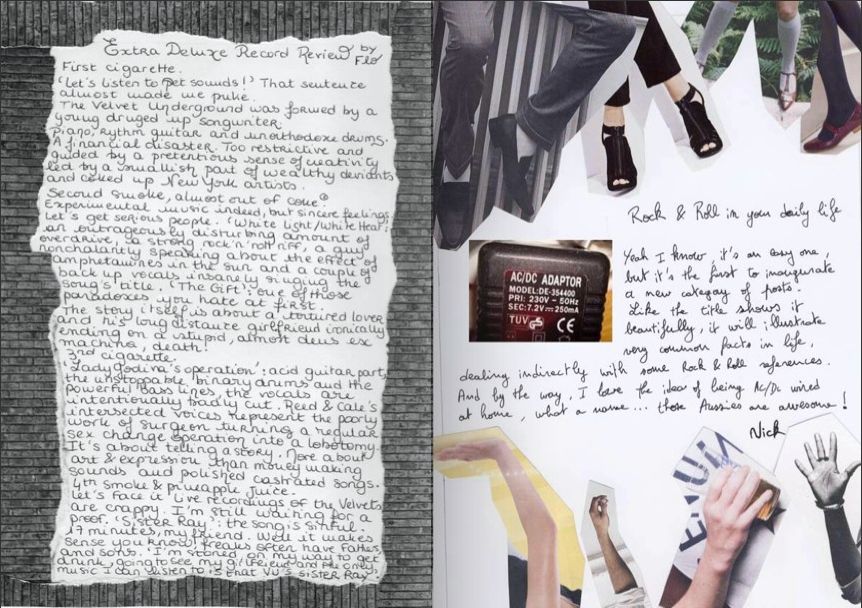 Extra Deluxe Record Review by Flo
First cigarette.
"Let's listen to Pet sounds!" That sentence
almost made me puke.
The Velvet Underground was formed by a
young druged up songwriter.
Piano, rythm guitar and unorthodoxe drums.
A financial disaster. Too restrictive and
guided by a pretentious sense of creativity
led by a smallish part of wealthy deviants
and coked up New York artists.
Second smoke, almost out of coke.
Experimental music indeed, but sincere feelings.
Let's get serious people. 'White Light/White Heat':
an outrageously disturbing amount of
overdrive, a strong rock'n'roll riff, a guy
nonchalantly speaking about the effect of
amphetamines in the sun and a couple of
back up vocals insanely singing the
song's title. 'The Gift': one of those
paradoxes you hate at first.
The story itself is about a tortured lover
and his long distance girlfriend ironically
ending on a stupid, almost deus ex
machina, death!
3rd cigarette.
'Lady Godiva's operation': acid guitar part,
the unstoppable binary drums and the
powerful bass lines, the vocals are
intentionally badly cut. Reed & Cale's
intersected voices represent the poorly
work of surgeon turning a regular
sex change operation into a lobotomy.
It's about telling a story. More about
art & expression than money making
sounds and polished castrated songs.
4th smoke & pineapple juice.
Let's face it: live recordings of the Velvets
are crappy. I'm still waiting for a
proof. 'Sister Ray': the song is sinful.
17 minutes, my friend. Well it makes
sense you know, freaks often have Fathers
and sons. 'I'm stoned on my way to get
drunk, going to see my girlfriend and the only
music I can listen to is that VU's sister Ray.'
Rock & Roll in your daily life
Yeah I know, it's an easy one,
but it's the first to inaugurate
a new category of posts!
Like the title shows it
beautifully, it will illustrate
very common facts in life,
dealing indirectly with some Rock & Roll references.
And by the way, I love the idea of being AC/DC wired
at home, what a name... those Aussies are awesome!
Nick
AC/DC ADAPTOR
MODEL:DE-354400
PRI: 230V ~ 50Hz
SEC:7.2V 250mA
TUV GS CE